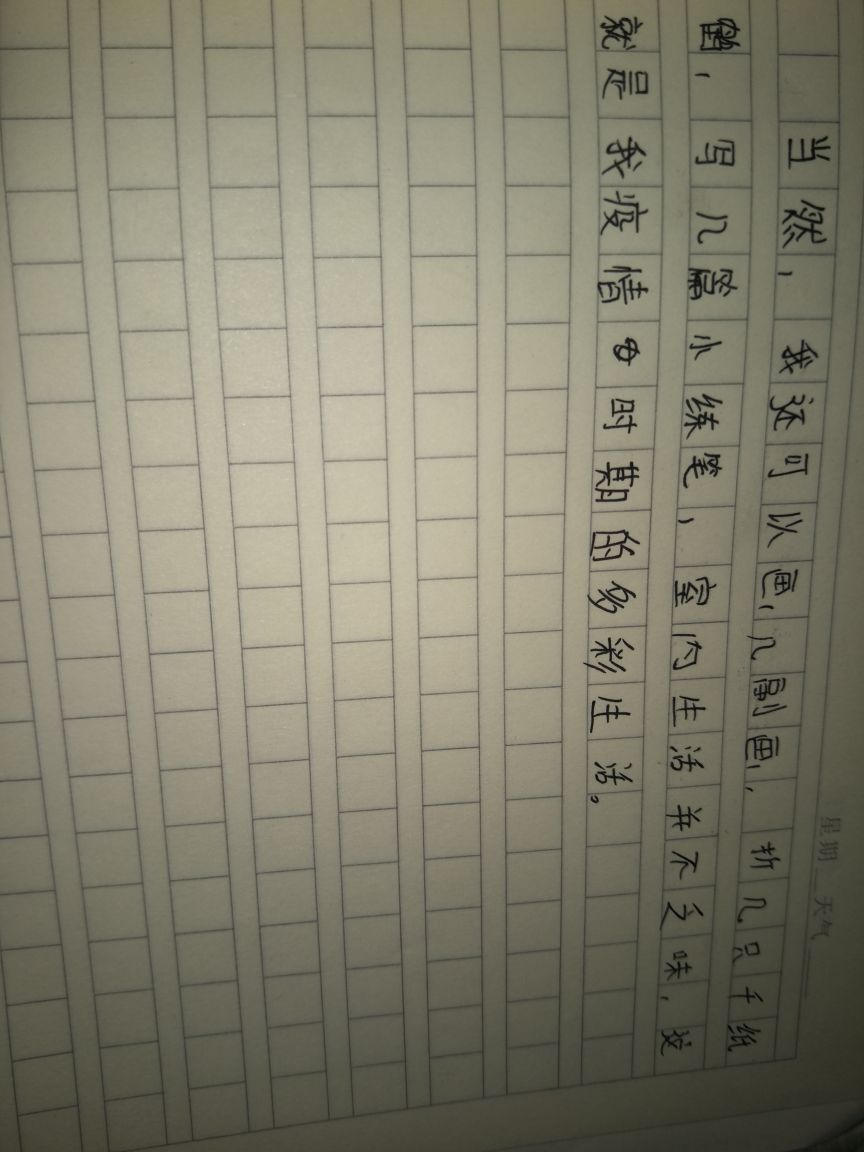 星期 天气
当然，我还可以画几副画，折几只千纸
鹤，写几篇小练笔，室内生活并不乏味，这
就是我疫情时期的多彩生活。